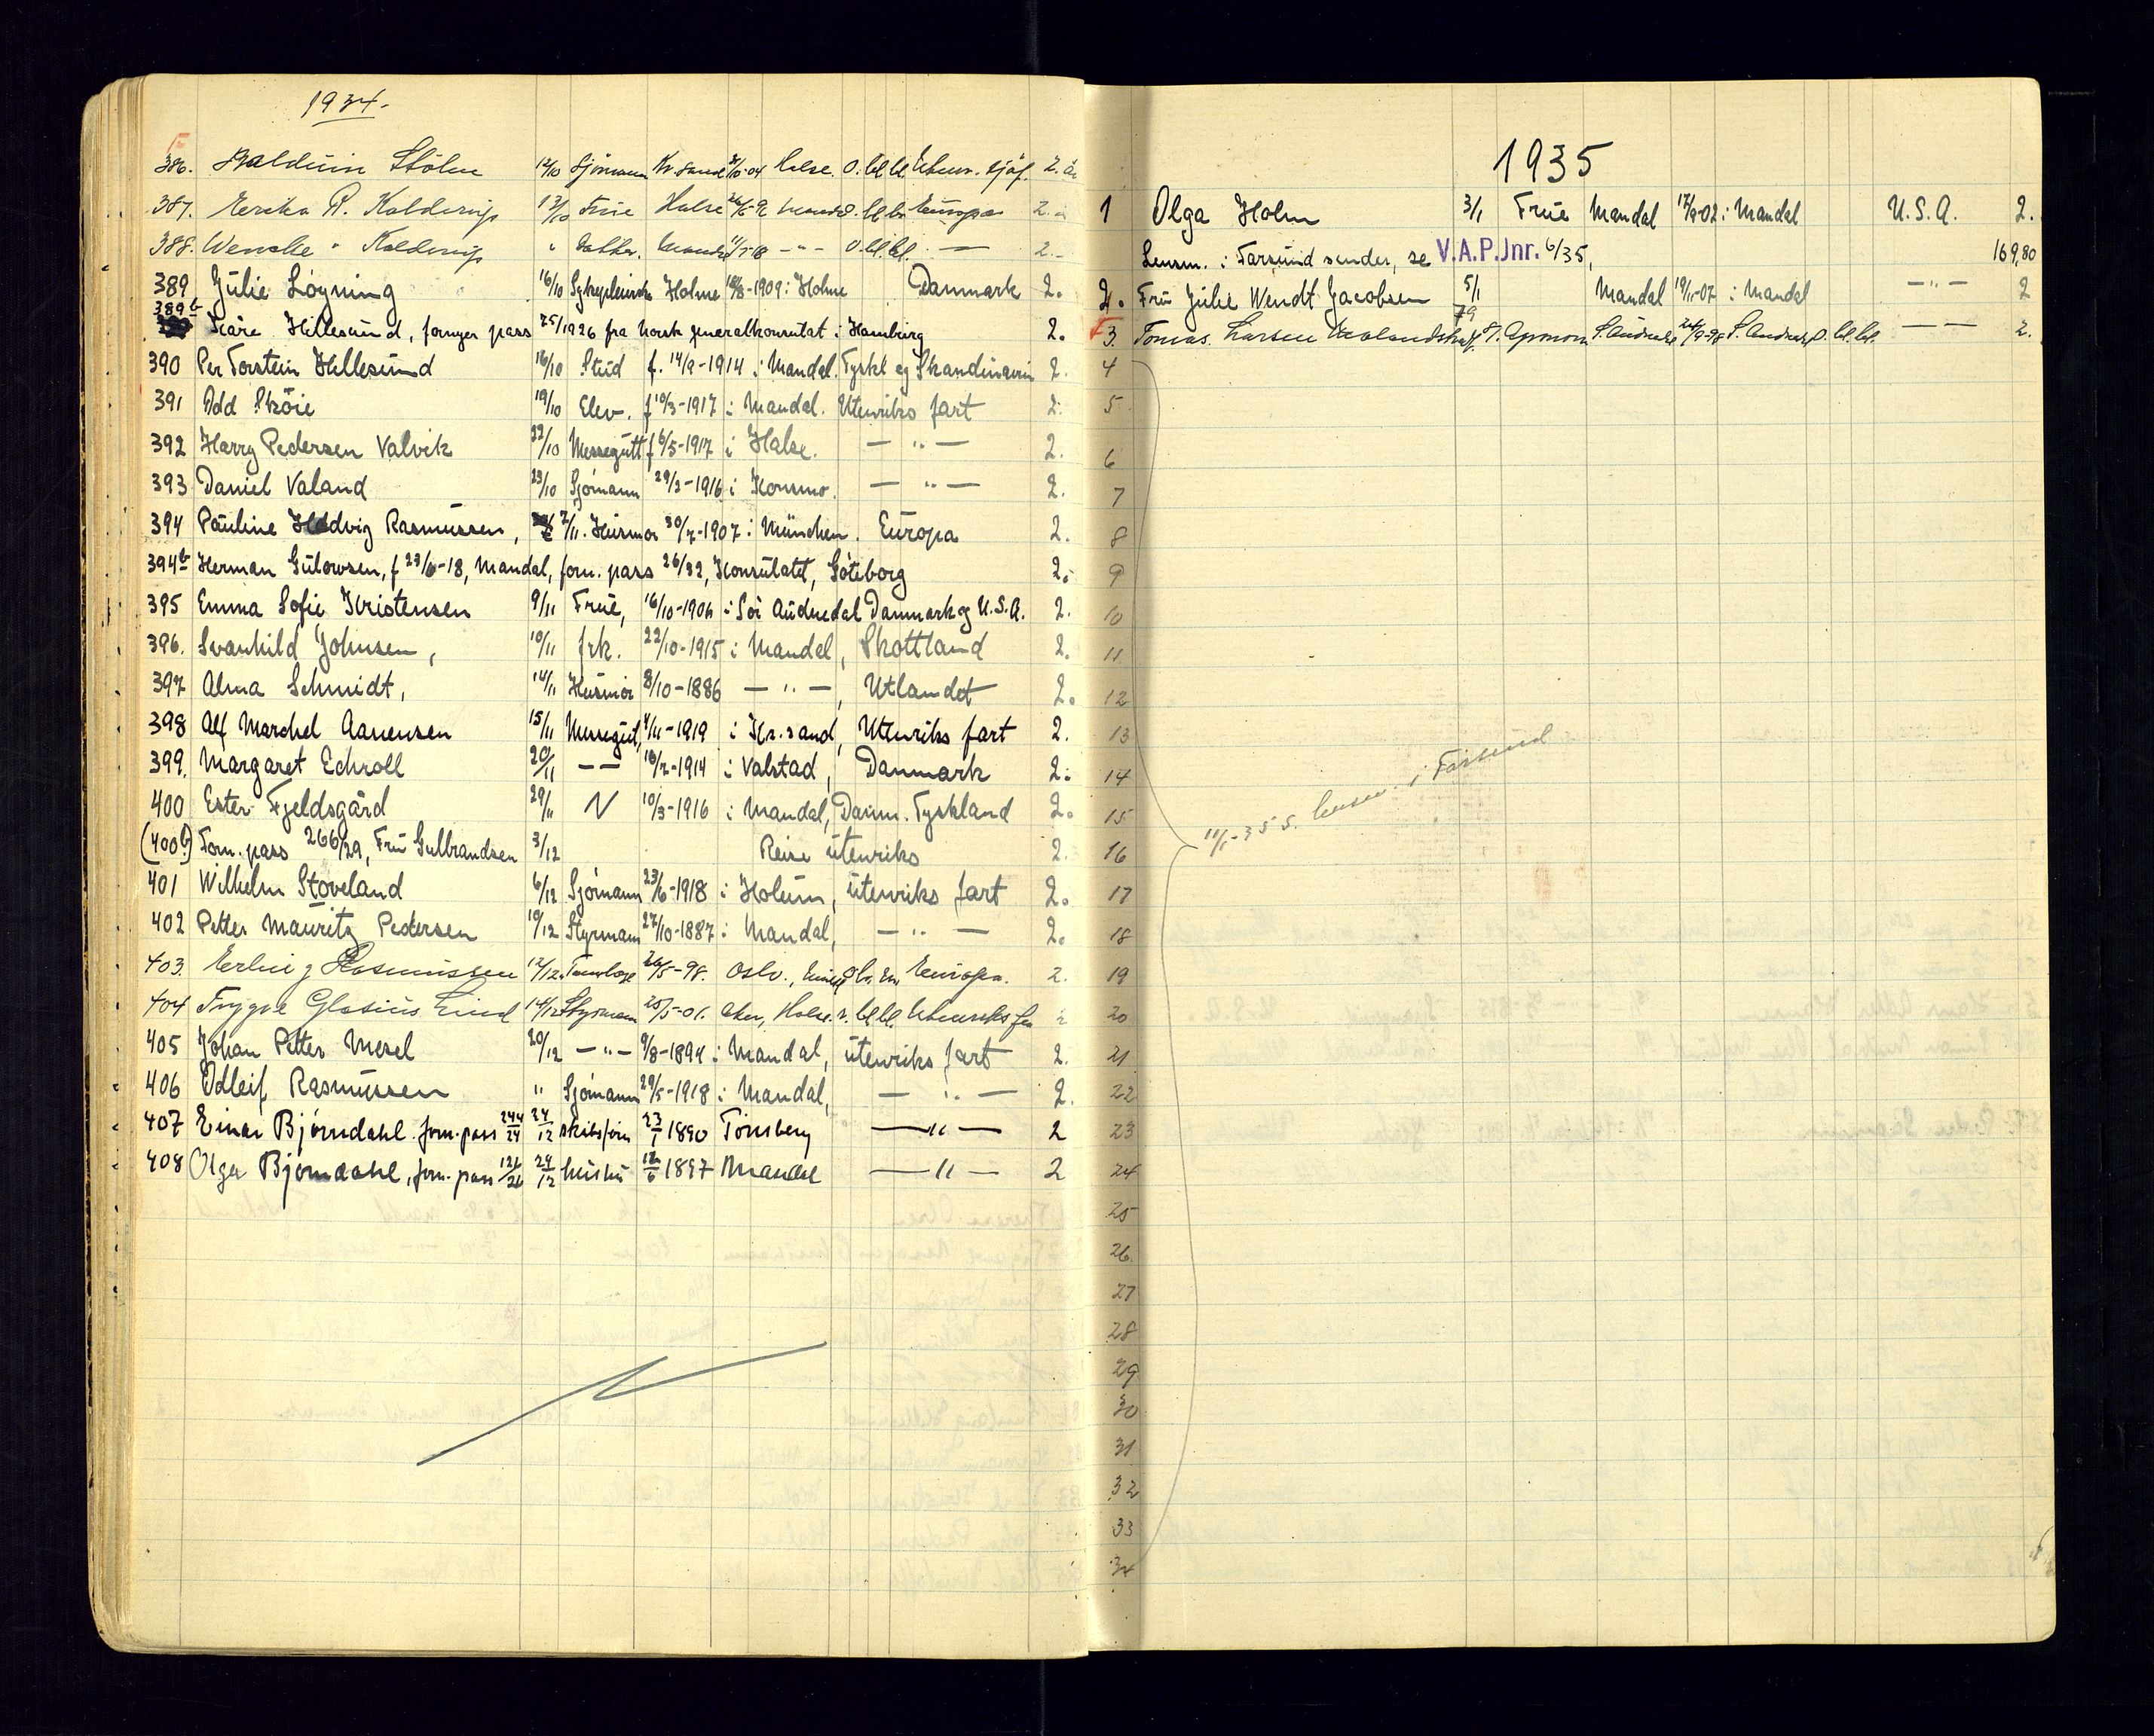 1934.
386. Balduin Stölen 12/10 Sjömann Kr.sand 31/10-04 Halse. O. bl bl. Utenr. sjöf. 2.
387. Ercka R. Kalderup 13/10 Frue Halse 26/5-92 Mandal bl. br. Europa 2.
388. Wenche " Kalderup " Datter. Mandal -18 - " - O. bl. bl. — 2.
389 Julie Löyning 16/10 Sykepleierske Holme 18/8-1909 i Holme Danmark 2.
389b Kåre Hillesund, fornyer pass 75/1926 fra Norsk generalkonsulat i Hamburg 2.
390 Per Torstein Hillesund 16/10 Stud f. 14/9-1914 i Mandal. Tyskl og Skandinavien 2.
391 Odd Sköie 19/10 Elev. f 10/3-1917 i Mandal. Utenriks fart 2.
392 Harry Pedersen Valvik 22/10 Messegutt f 6/5-1917 i Halse. — " — 2.
393 Daniel Valand 23/10 Sjömann 29/3-1916 i Konsmo. — " — 2.
394 Pauline Hedvig Rasmussen, 2/11. Husmor 30/7-1907 i München. Europa 2.
394b Herman Gulowsen, f 23/6-18, Mandal, forn. pass 26/32, Konsulatet, Göteborg 2.
395 Emma Sofie Kristensen 9/11 Frue, 16/10-1906 i Sör Audnedal Danmark og U.S.A. 2.
396. Svanhild Johnsen, 10/11 frk. 22/10-1915 i Mandal, Skottland 2.
397 Alma Schmidt, 14/11 Husmor 8/10-1886 — " —, Utlandet 2.
398 Alf Marchel Aanensen 15/11 Messegut, 4/11-1919 i Kr.sand, Utenriks fart 2.
399. Margaret Echroll 20/11 — — 16/7-1914 i Valstad, Danmark 2.
400 Ester Fjeldsgård 29/11 10/3-1916 i Mandal, Danm. Tyskland 2.
(400b) Forn. pass 266/29, Fru Gulbrandsen 3/12 Reise utenriks 2.
401 Wilhelm Stoveland 6/12 Sjömann 23/6-1918 i Holum, utenriks fart 2.
402 Petter Mauritz Pedersen 10/12 Styrmann 27/10-1887 i Mandal, — " — 2.
403. Erling Rasmussen 12/12 26/5-98. Oslo., Europa. 2.
404 Trygve Glasius Lind 14/12 Styrmann 25/5-01. Aker, Halse. bl. bl. Utenriks fa 2
405 Johan Petter Mesel 20/12 — " — 9/8-1894 i Mandal, utenriks fart 2.
406 Odleif Rasmussen " Sjömann 29/5-1918 i Mandal, — " — 2.
407 Einar Bjørndahl forn. pass 244/24 24/12 skibsförer 23/1 1890 Tönsberg — " — 2
408 Olga Bjørndahl, forn. pass 24/12 hustru 12/6 1897 Mandal — " — 2
1935
1 Olga Holm 3/1 Frue Mandal 17/9-02 i Mandal U.S.A. 2.
Lensm. i Farsund sender, se V.A.P.Jnr. 6/35, 169,80
2. Fru Julie Wendt Jacobsen 5/1 Mandal 19/11-07 i Mandal — " — 2
3. Tomas Larsen 24/9-98 S. Audnedal O. bl. bl. — — 2.
4
5
6
7
8
9
10
11
12
13
14
15
16 11/1-35 s. lensm. i Farsund
17
18
19
20
21
22
23
24
25
26
27
28
29
30
31
32
33
34